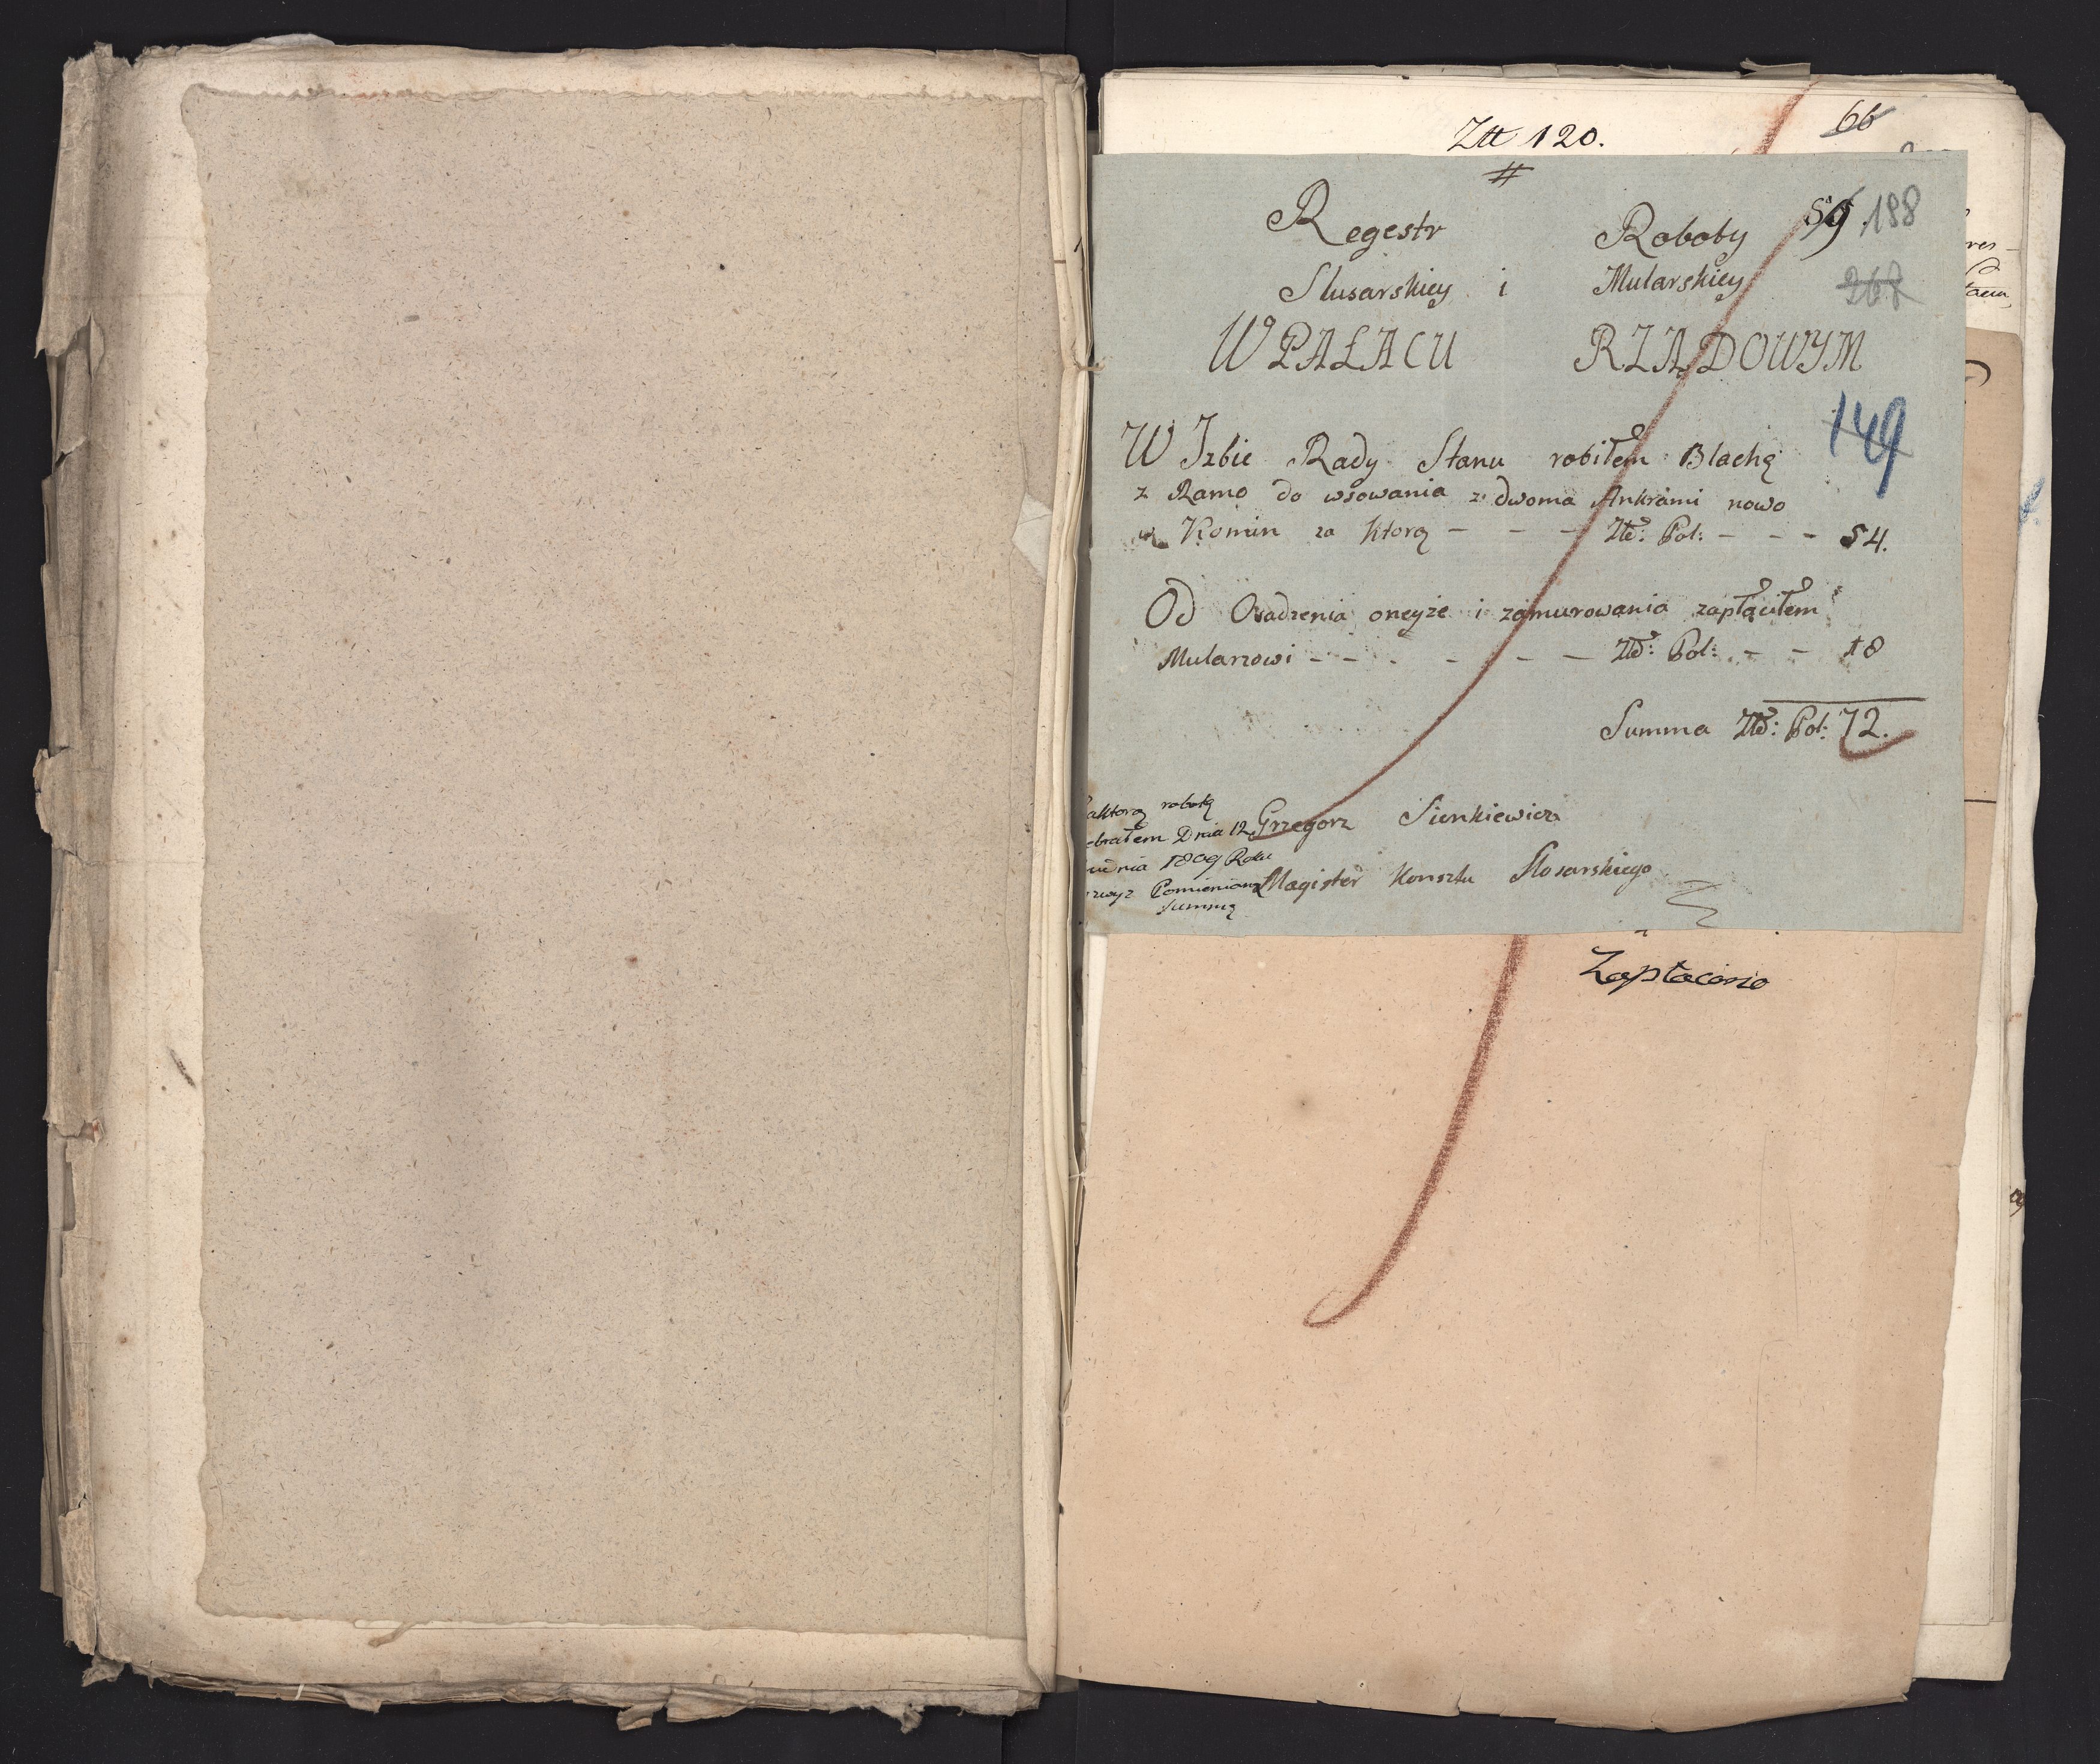 66
Złł 120.
#
Regestr Roboty 59 188
Slusarskiey i Mularskiey 267
W PAŁACU RZĄDOWYM
149
W Izbie Rady Stanu robiłem Blachę
z Ramo do wsowania z dwoma Ankrami nowo
w Komin za ktorą – – – Złł: Pol: – – – 54.
Od Osadzenia oneyże i zamurowania zapłaciłem
Mularzowi – – – – – – Złł: Pol: – – 18
Summa Złł: Pol: 72.
aktorą robotę
ebrałem Dnia 12
udnia 1809 Roku
zwyz Pomienioną
summę
Grzegorz Sienkiewicz
Magister Konsztu Slosarskiego
Zapłacono